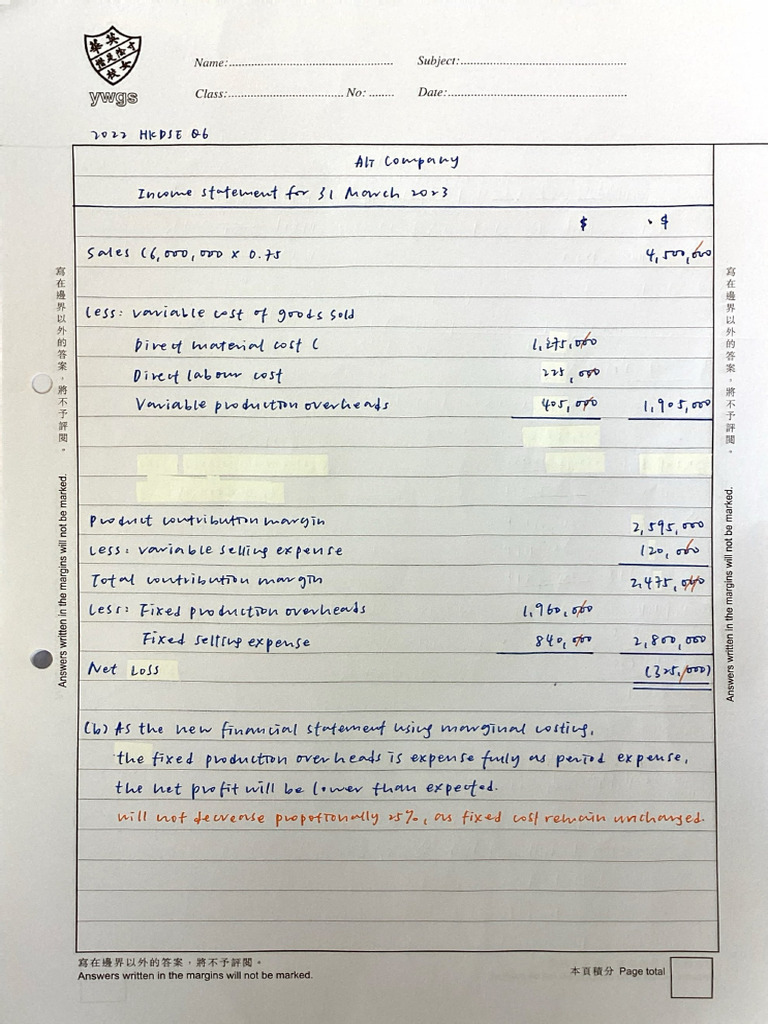 華英
女校
ywgs
Name:
Subject:
Class:
No:
Date:
2022 HKDSE Q6
AIT Company
Income statement for 31 March 2023
$ $
Sales (6,000,000 x 0.75 4,500,000
Less: variable cost of goods sold
Direct material cost ( 1,275,000
Direct labour cost 225,000
Variable production overheads 405,000 1,905,000
Product contribution margin 2,595,000
Less: variable selling expense 120,000
Total contribution margin 2,475,000
Less: Fixed production overheads 1,960,000
Fixed selling expense 840,000 2,800,000
Net Loss (325,000)
(b) As the new financial statement using marginal costing,
the fixed production overheads is expense fully as period expense,
the net profit will be lower than expected.
will not decrease propotionally 25%, as fixed cost remain unchanged.
寫在邊界以外的答案，將不予評閱。
Answers written in the margins will not be marked.
本頁積分 Page total
寫在邊界以外的答案，將不予評閱。
Answers written in the margins will not be marked.
寫在邊界以外的答案，將不予評閱。
Answers written in the margins will not be marked.